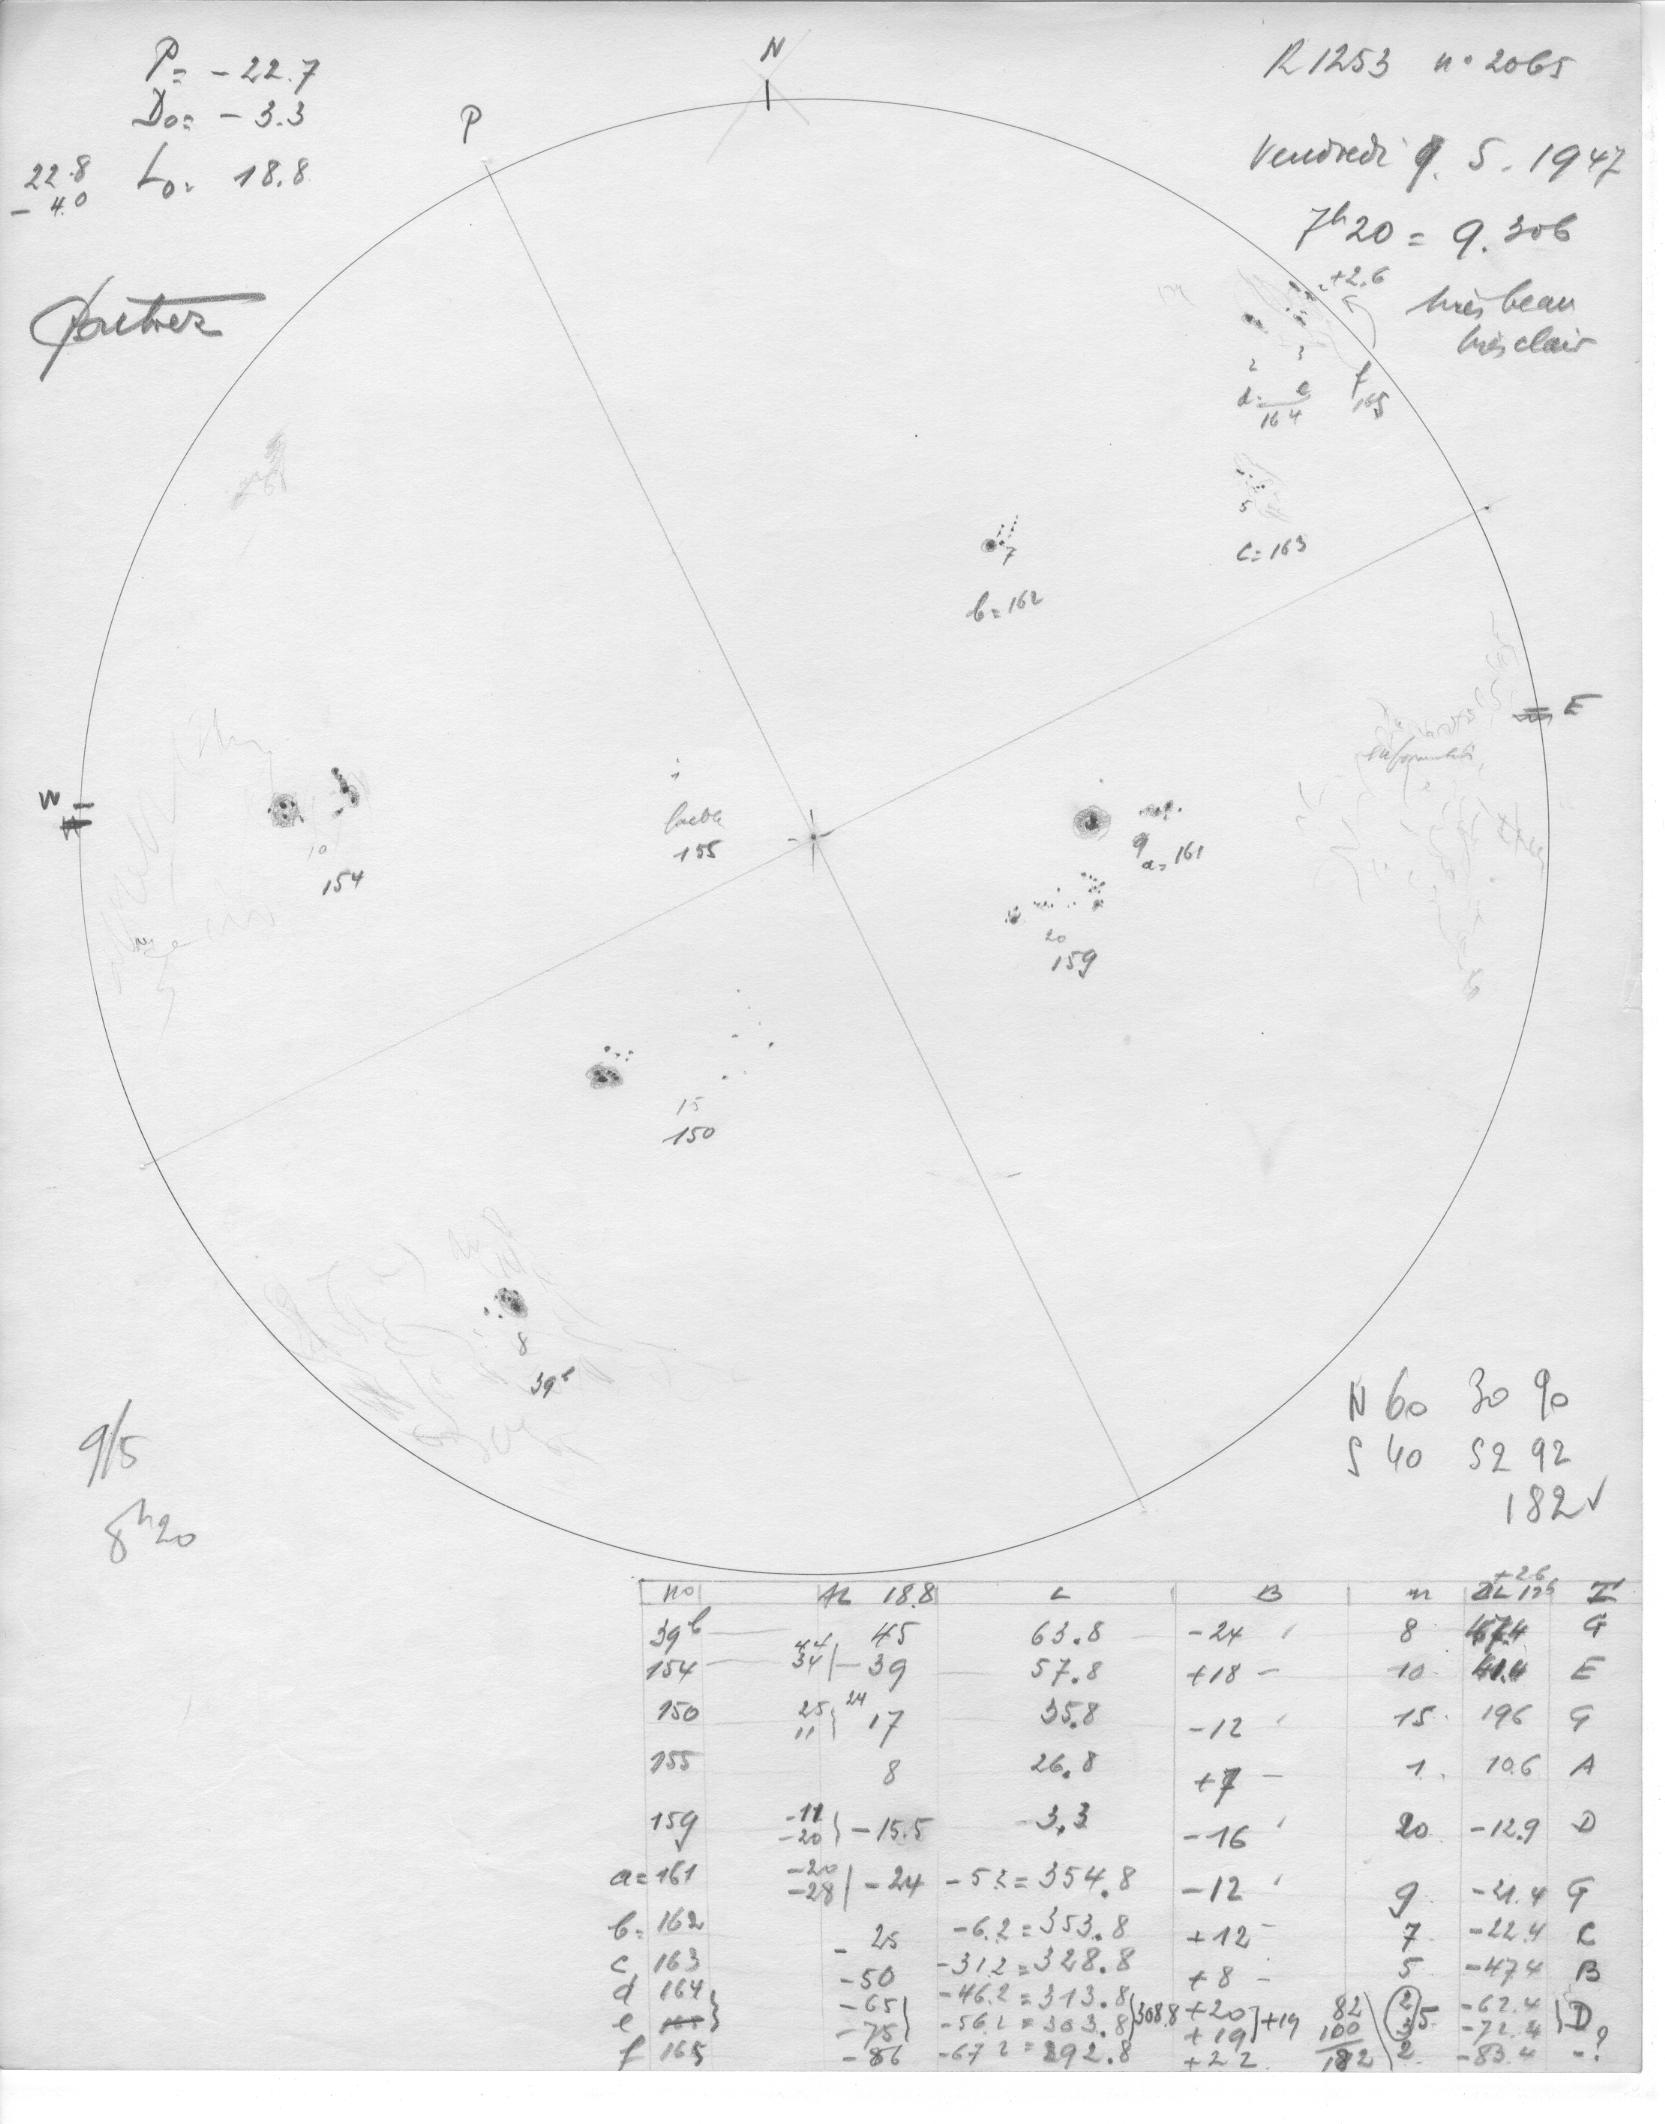 P= -22.7
Do= -3.3
Lo= 18.8
22.8
- 4.0
N
P
R 1253 n° 2065
Vendredi 9. 5. 1947
7h20 = 9.306
très beau
très clair
+2.6
2 3
d= e f
164 165
5
c=163
7
b=162
E
W
10
154
1
155
9
a=161
20
159
15
150
8
39b
9/5
8h20
N 60 30 90
S 40 52 92
182 ✓
+2.6
no ΔL 18.8 L B n I
39b 45 63.8 -24 8 G
154 44 34 -39 57.8 +18 10 E
150 25 11 24 17 35.8 -12 15 19.6 G
155 8 26.8 +7 1 10.6 A
159 -11 -20 -15.5 3.3 -16 20 -12.9 D
a=161 -20 -28 -24 -5.2 = 354.8 -12 9 -21.4 G
b=162 -25 -6.2 = 353.8 +12 7 -22.4 C
c 163 -50 -31.2 = 328.8 +8 5 -47.4 B
d 164 -65 -46.2 = 313.8 308.8 +20 +19 82 2 5 -62.4 D
e -75 -56.2 = 303.8 +19 100 3 -72.4
f 165 -86 -67.2 = 292.8 +22 182 2 -83.4 -?